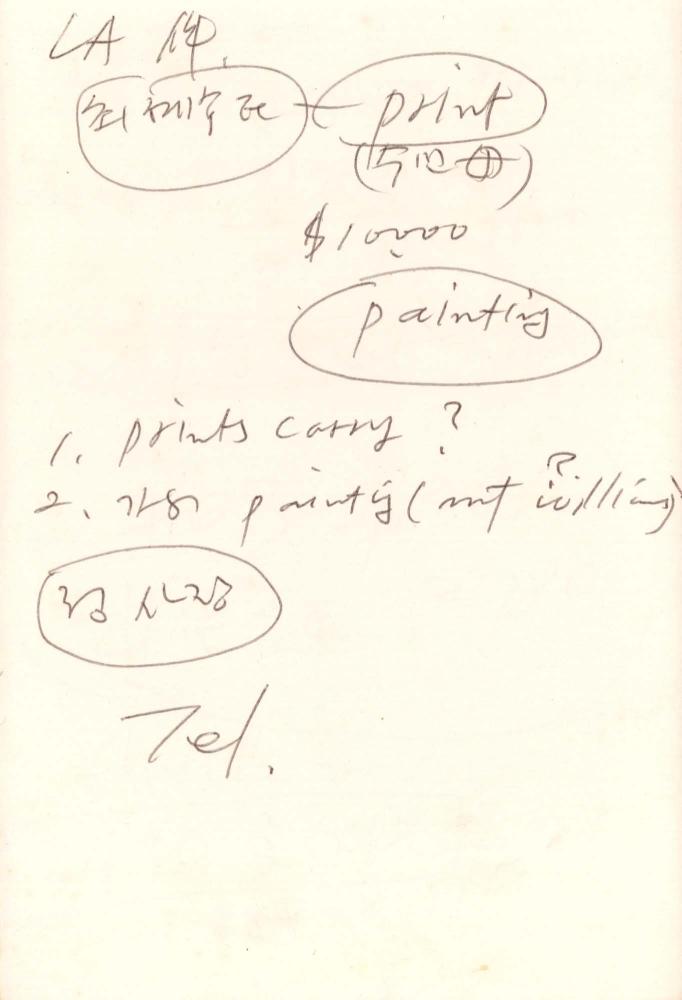 LA 件.
print
$10000
painting
1. prints carry ?
2. painting ( not willing ?)
정 사장
Tel.